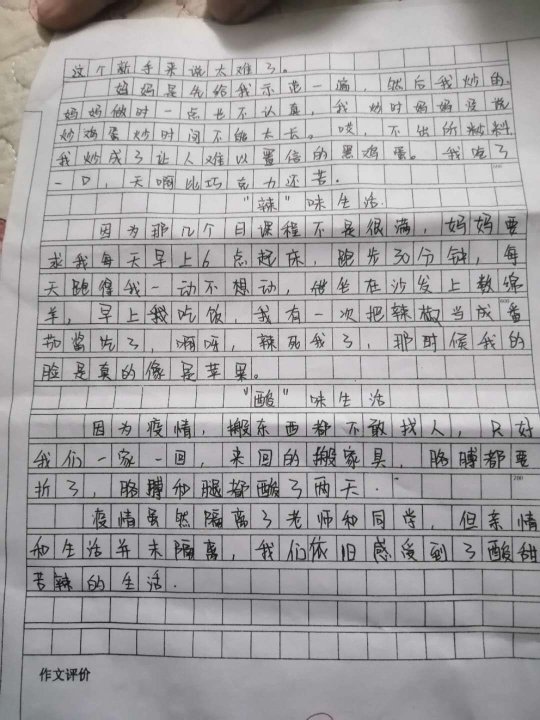 这个新手来说太难了。
妈妈是先给我示范一遍，然后我炒的.
妈妈做时一点也不认真，我炒时妈妈没说
炒鸡蛋炒时间不能太长。哎，不出所料
我炒成了让人难以置信的黑鸡蛋。我吃了
一口，天啊比巧克力还苦.
"辣"味生活.
因为那几个日课程不是很满，妈妈要
求我每天早上6点起床，跑步30分钟，每
天跑得我一动不想动，坐在沙发上数绵
羊，早上我吃饭，我有一次把辣椒当成番
茄酱吃了，啊呀，辣死我了，那时候我的
脸是真的像是苹果。
"酸"味生活
因为疫情，搬东西都不敢找人，只好
我们一家一回，来回的搬家具，胳膊都要
折了，胳膊和腿都酸了两天.
疫情虽然隔离了老师和同学，但亲情
和生活并未隔离，我们依旧感受到了酸甜
苦辣的生活.
作文评价